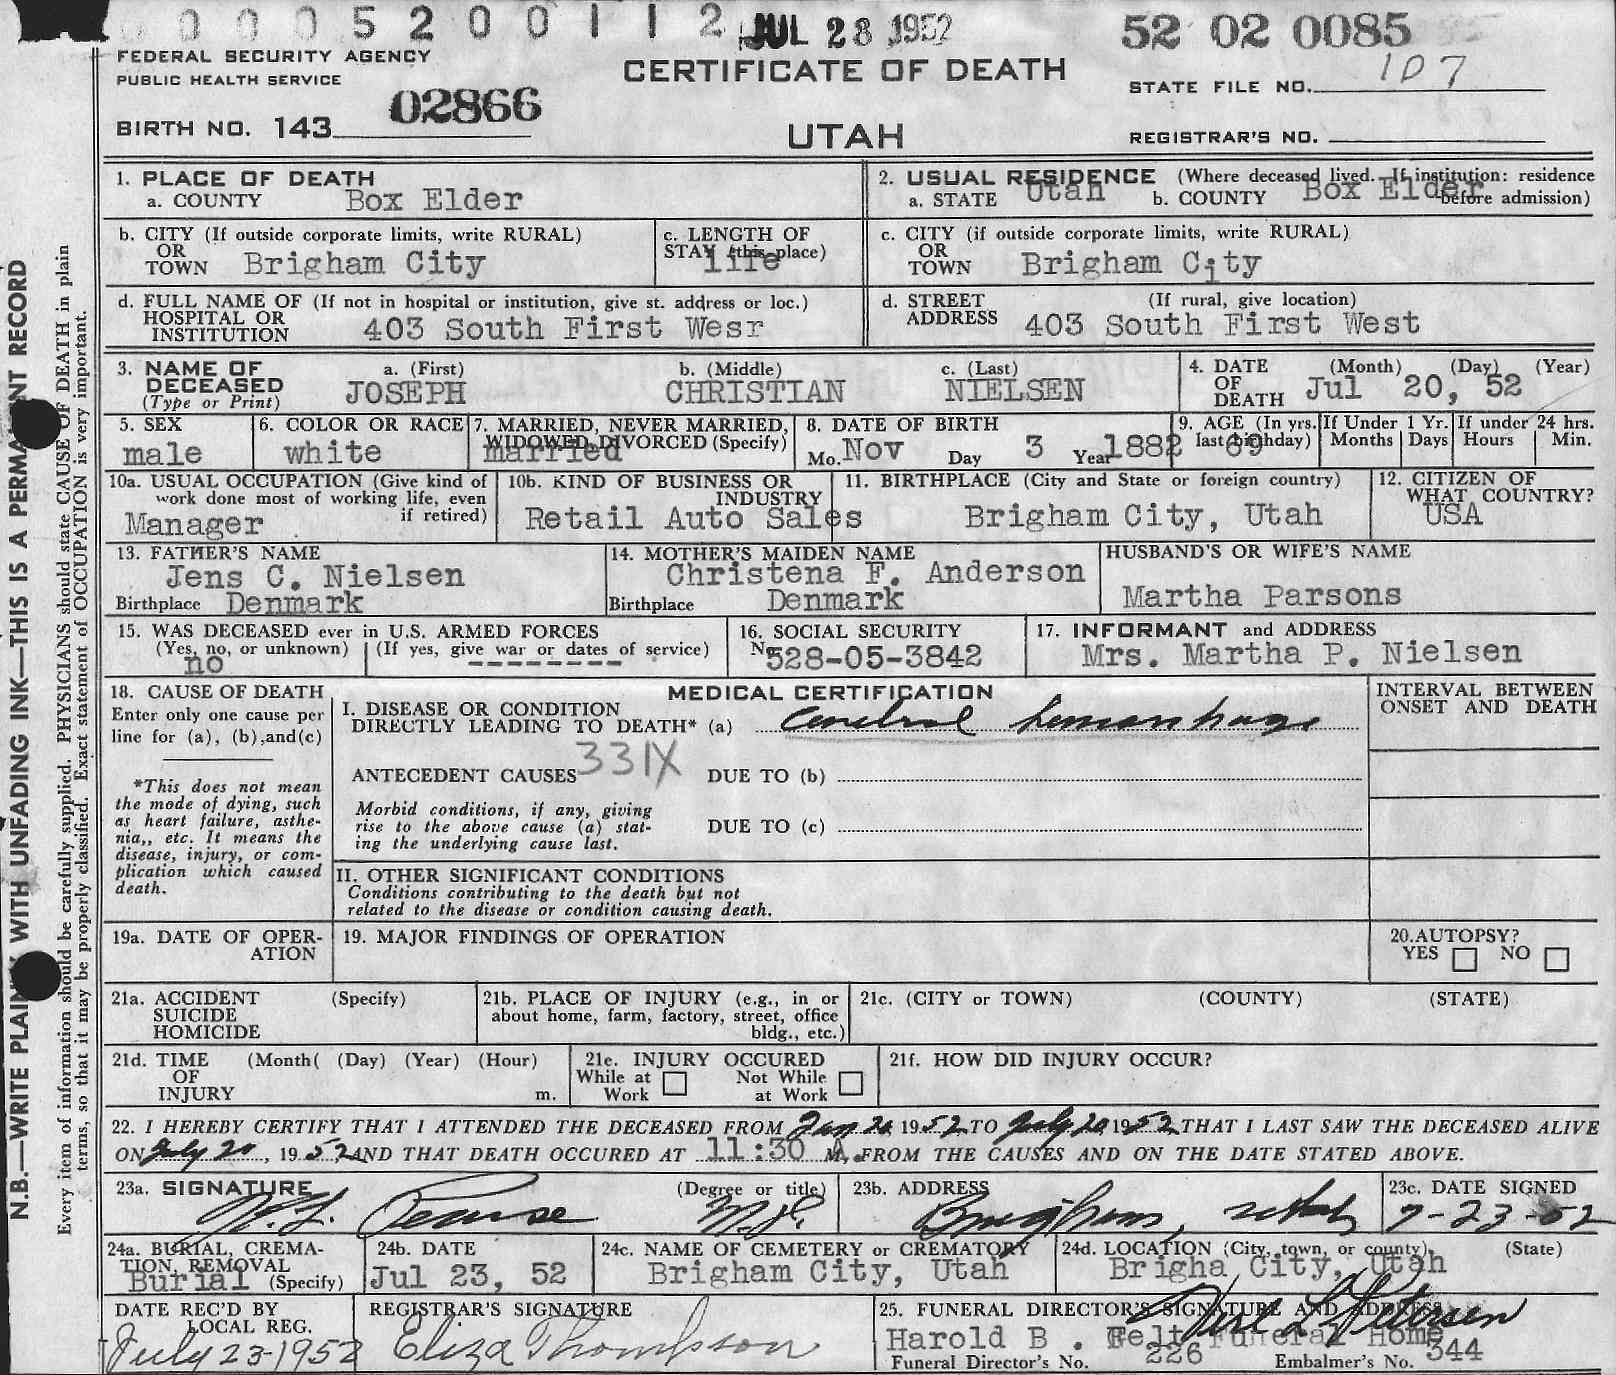 0 0 0 5 2 0 0 1 1 2 JUL 28 1952 52 02 0085
FEDERAL SECURITY AGENCY
PUBLIC HEALTH SERVICE
CERTIFICATE OF DEATH
STATE FILE NO. 107
BIRTH NO. 143 02866
UTAH
REGISTRAR'S NO.
1. PLACE OF DEATH
a. COUNTY Box Elder
2. USUAL RESIDENCE (Where deceased lived. If institution: residence before admission)
a. STATE Utah b. COUNTY Box Elder
b. CITY (If outside corporate limits, write RURAL)
OR
TOWN Brigham City
c. LENGTH OF
STAY (this place)
life
c. CITY (if outside corporate limits, write RURAL)
OR
TOWN Brigham City
d. FULL NAME OF (If not in hospital or institution, give st. address or loc.)
HOSPITAL OR
INSTITUTION 403 South First Wesr
d. STREET (If rural, give location)
ADDRESS 403 South First West
3. NAME OF
DECEASED
(Type or Print)
a. (First) b. (Middle) c. (Last)
JOSEPH CHRISTIAN NIELSEN
4. DATE (Month) (Day) (Year)
OF
DEATH Jul 20, 52
5. SEX
male
6. COLOR OR RACE
white
7. MARRIED, NEVER MARRIED,
WIDOWED, DIVORCED (Specify)
married
8. DATE OF BIRTH
Mo. Nov Day 3 Year 1882
9. AGE (In yrs.
last birthday)
69
If Under 1 Yr.
Months Days
If under 24 hrs.
Hours Min.
10a. USUAL OCCUPATION (Give kind of
work done most of working life, even
if retired)
Manager
10b. KIND OF BUSINESS OR
INDUSTRY
Retail Auto Sales
11. BIRTHPLACE (City and State or foreign country)
Brigham City, Utah
12. CITIZEN OF
WHAT COUNTRY?
USA
13. FATHER'S NAME
Jens C. Nielsen
Birthplace Denmark
14. MOTHER'S MAIDEN NAME
Christena F. Anderson
Birthplace Denmark
HUSBAND'S OR WIFE'S NAME
Martha Parsons
15. WAS DECEASED ever in U.S. ARMED FORCES
(Yes, no, or unknown) (If yes, give war or dates of service)
no --------
16. SOCIAL SECURITY
No 528-05-3842
17. INFORMANT and ADDRESS
Mrs. Martha P. Nielsen
18. CAUSE OF DEATH
Enter only one cause per
line for (a), (b),and(c)
*This does not mean
the mode of dying, such
as heart failure, asthe-
nia,, etc. It means the
disease, injury, or com-
plication which caused
death.
MEDICAL CERTIFICATION
I. DISEASE OR CONDITION
DIRECTLY LEADING TO DEATH* (a) Cerebral hemorrhage
ANTECEDENT CAUSES 331X DUE TO (b)
Morbid conditions, if any, giving
rise to the above cause (a) stat-
ing the underlying cause last.
DUE TO (c)
II. OTHER SIGNIFICANT CONDITIONS
Conditions contributing to the death but not
related to the disease or condition causing death.
INTERVAL BETWEEN
ONSET AND DEATH
19a. DATE OF OPER-
ATION
19. MAJOR FINDINGS OF OPERATION
20.AUTOPSY?
YES NO
21a. ACCIDENT (Specify)
SUICIDE
HOMICIDE
21b. PLACE OF INJURY (e.g., in or
about home, farm, factory, street, office
bldg., etc.)
21c. (CITY or TOWN) (COUNTY) (STATE)
21d. TIME (Month( (Day) (Year) (Hour)
OF
INJURY m.
21e. INJURY OCCURED
While at Work Not While at Work
21f. HOW DID INJURY OCCUR?
22. I HEREBY CERTIFY THAT I ATTENDED THE DECEASED FROM Jan 20 1952 TO July 20 1952 THAT I LAST SAW THE DECEASED ALIVE
ON July 20, 1952 AND THAT DEATH OCCURED AT 11:30 A.M. FROM THE CAUSES AND ON THE DATE STATED ABOVE.
23a. SIGNATURE (Degree or title)
Pearse M.D.
23b. ADDRESS
Brigham, Utah
23c. DATE SIGNED
7-23-52
24a. BURIAL, CREMA-
TION, REMOVAL
Burial (Specify)
24b. DATE
Jul 23, 52
24c. NAME OF CEMETERY or CREMATORY
Brigham City, Utah
24d. LOCATION (City, town, or county) (State)
Brigha City, Utah
DATE REC'D BY
LOCAL REG.
July 23-1952
REGISTRAR'S SIGNATURE
Eliza Thompson
25. FUNERAL DIRECTOR'S SIGNATURE AND ADDRESS
Petersen
Harold B . Felt Funeral Home
Funeral Director's No. 226 Embalmer's No. 344
N.B.—WRITE PLAINLY WITH UNFADING INK—THIS IS A PERMANENT RECORD
Every item of information should be carefully supplied. PHYSICIANS should state CAUSE OF DEATH in plain
terms, so that it may be properly classified. Exact statement of OCCUPATION is very important.